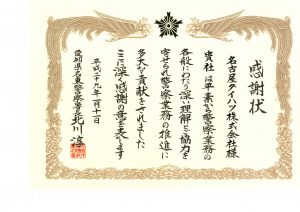 感謝状
名古屋ダイハツ株式会社様
貴社は平素から警察業務の
各般にわたり深い理解と協力を
寄せられ警察業務の推進に
多大な貢献をされました
ここに深く感謝の意を表します
平成二十九年一月十一日
愛知県名東警察署長 北川 淳